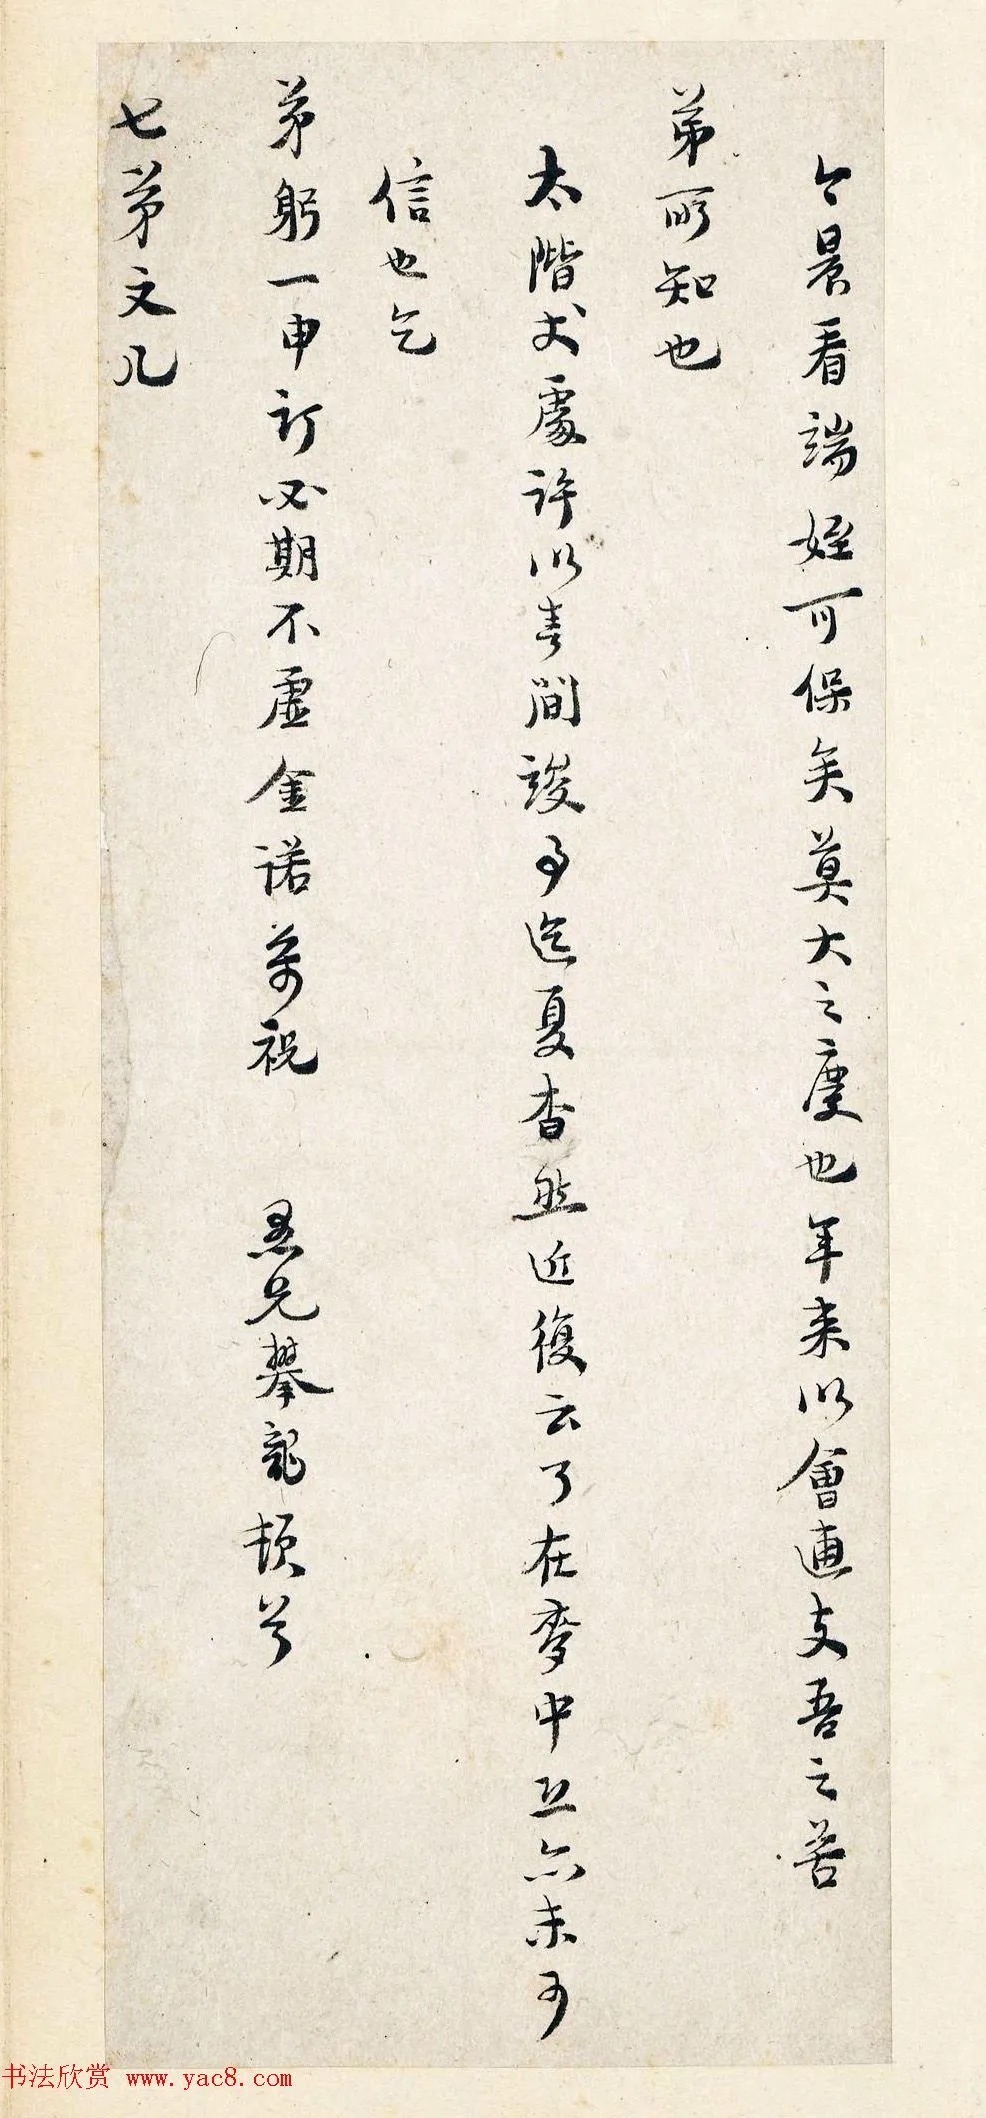 今晨看端姪可保矣莫大之慶也年來以會逋支吾之苦
弟所知也
太階丈處許以春間竣事迄夏杳然近復云了在麥中丘亦未可
信也乞
弟躬一申訂必期不虛金諾萬祝 愚兄攀龍頓首
七弟文几
书法欣赏 www.yac8.com